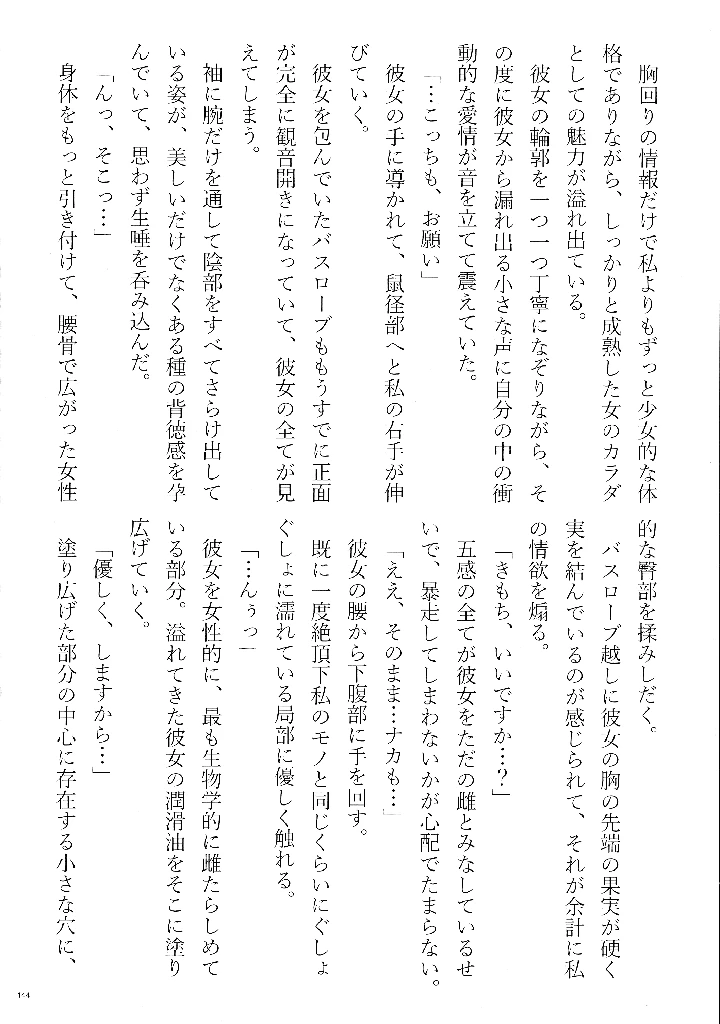 胸回りの情報だけで私よりもずっと少女的な体
格でありながら、しっかりと成熟した女のカラダ
としての魅力が溢れ出ている。
彼女の輪郭を一つ一つ丁寧になぞりながら、そ
の度に彼女から漏れ出る小さな声に自分の中の衝
動的な愛情が音を立てて震えていた。
「…こっちも、お願い」
彼女の手に導かれて、鼠径部へと私の右手が伸
びていく。
彼女を包んでいたバスローブももうすでに正面
が完全に観音開きになっていて、彼女の全てが見
えてしまう。
袖に腕だけを通して陰部をすべてさらけ出して
いる姿が、美しいだけでなくある種の背徳感を孕
んでいて、思わず生唾を呑み込んだ。
「んっ、そこっ…」
身体をもっと引き付けて、腰骨で広がった女性
的な臀部を揉みしだく。
バスローブ越しに彼女の胸の先端の果実が硬く
実を結んでいるのが感じられて、それが余計に私
の情欲を煽る。
「きもち、いいですか…？」
五感の全てが彼女をただの雌とみなしているせ
いで、暴走してしまわないかが心配でたまらない。
「ええ、そのまま…ナカも…」
彼女の腰から下腹部に手を回す。
既に一度絶頂下私のモノと同じくらいにぐしょ
ぐしょに濡れている局部に優しく触れる。
「…んぅっ」
彼女を女性的に、最も生物学的に雌たらしめて
いる部分。溢れてきた彼女の潤滑油をそこに塗り
広げていく。
「優しく、しますから…」
塗り広げた部分の中心に存在する小さな穴に、
144